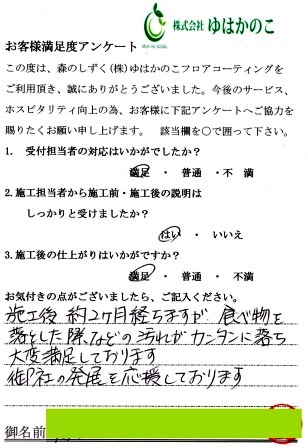 株式会社 ゆはかのこ
お客様満足度アンケート
この度は、森のしずく(株)ゆはかのこフロアコーティングを
ご利用頂き、誠にありがとうございました。今後のサービス、
ホスピタリティ向上の為、お客様に下記アンケートへご協力を
賜りたくお願い申し上げます。 該当欄を○で囲って下さい。
1. 受付担当者の対応はいかがでしたか?
満足 ・ 普通 ・ 不満
2. 施工担当者から施工前・施工後の説明は
しっかりと受けましたか?
はい ・ いいえ
3. 施工後の仕上がりはいかがですか?
満足 ・ 普通 ・ 不満
お気付きの点がございましたら、ご記入ください。
施工後 約2ヶ月経ちますが 食べ物を
落とした際などの汚れがカンタンに落ち
大変満足しております
御社の発展を応援しております
御名前